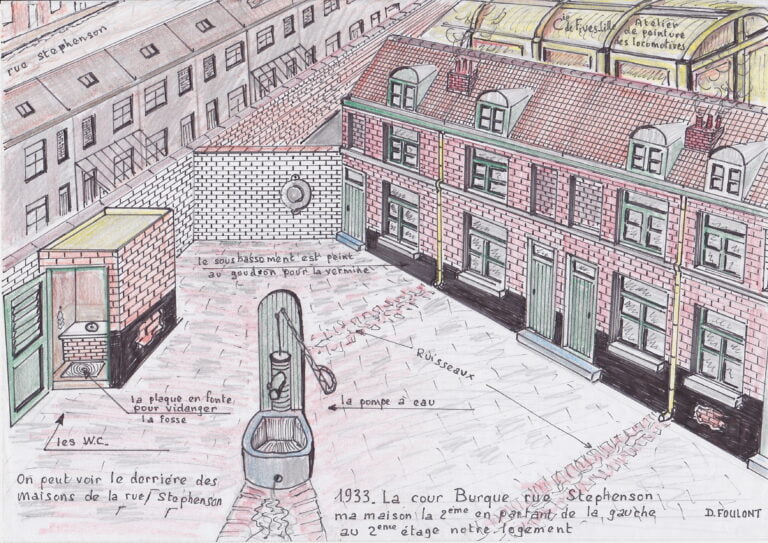 rue stephenson
Cie
de Fives Lille
Atelier
de peinture
des locomotives
le soubassoment est peint
au goudron pour la vermine
Ruisseaux
la plaque en fonte
pour vidanger
la fosse
la pompe à eau
les W.C.
On peut voir le derriére des
maisons de la rue Stephenson
1933. La cour Burque rue Stephenson
ma maison la 2ème en partant de la gauche
au 2ème étage notre logement
D. FOULONT